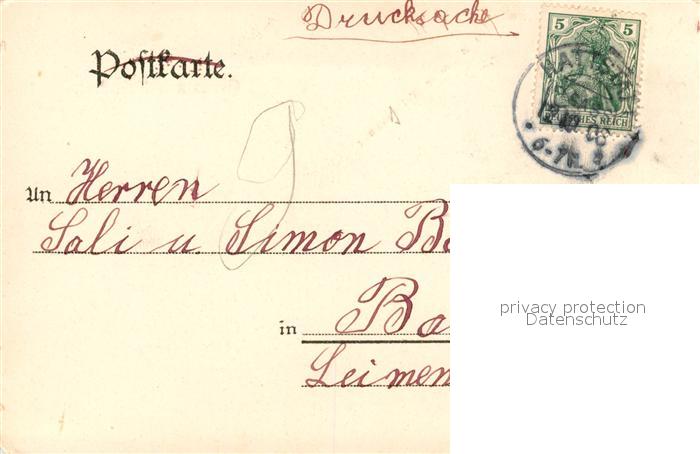 Drucksache
Postkarte.
5 5
DEUTSCHES REICH
6-7N.
An Herren
Sali u. Simon
in
privacy protection
Datenschutz